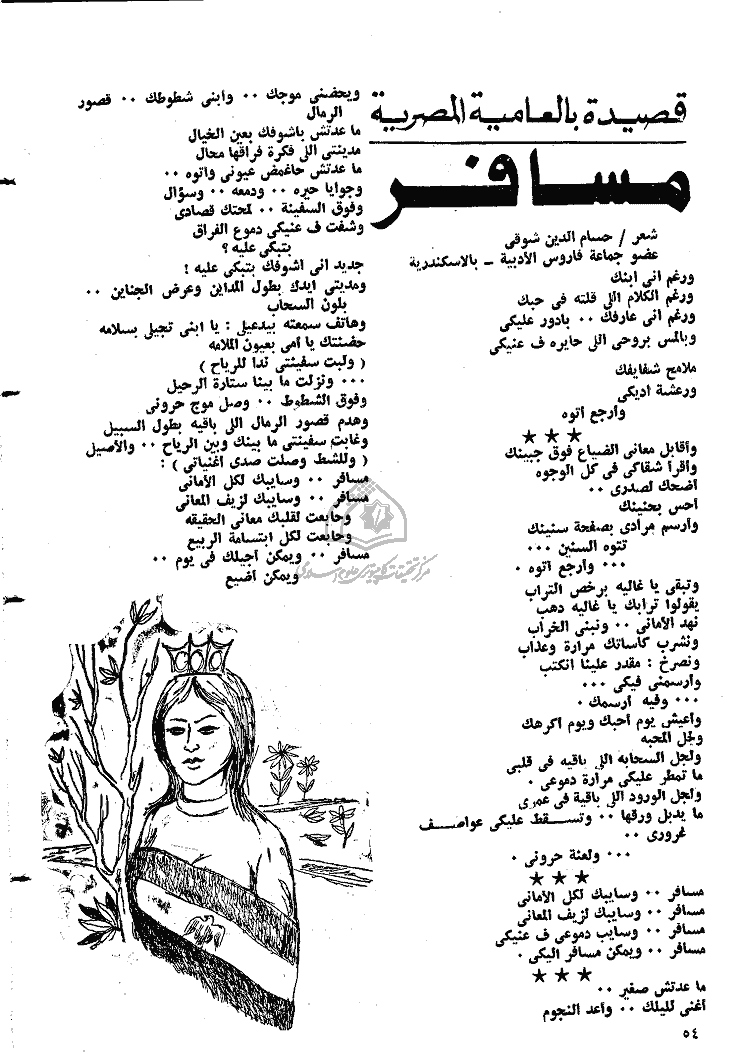 قصيدة بالعامية المصرية
مسافر
شعر / حسام الدين شوقى
عضو جماعة فاروس الأدبية ــ بالاسكندرية
ورغم انى ابنك
ورغم الكلام اللى قلته فى حبك
ورغم انى عارفك ٠٠ بادور عليكى
وبالمس بروحى اللى حايره ف عنيكى
ملامح شفايفك
ورعشة اديكى
وأرجع أتوه
★ ★ ★
وأقابل معانى الضياع فوق جبينك
وأقرأ شقاكى فى كل الوجوه
أضحك لصدرى ٠٠
أحس بحنينك
وأرسم مرادى بصفحة سنينك
تتوه السنين ٠٠٠
٠٠٠ وأرجع أتوه ٠
وتبقى يا غاليه برخص التراب
يقولوا ترابك يا غاليه دهب
نهد الأمانى ٠٠ ونبنى الخراب
ونشرب كاساتك مرارة وعذاب
ونصرخ : مقدر علينا انكتب
وارسمنى فيكى ٠٠٠
٠٠٠ وفيه أرسمك ٠
وأعيش يوم أحبك ويوم أكرهك
ولجل المحبه
ولجل السحابه اللى باقيه فى قلبى
ما تمطر عليكى مرارة دموعى ٠
ولجل الورود اللى باقية فى عمرى
ما يدبل ورقها ٠٠ وتسـقط عليكى عواصـف
غرورى ٠٠
٠٠٠ ولعنة حرونى ٠
★ ★ ★
مسافر ٠٠ وسايبك لكل الأمانى
مسافر ٠٠ وسايبك لزيف المعانى
مسافر ٠٠ وسايب دموعى ف عنيكى
مسافر ٠٠ ويمكن مسافر اليكى ٠
★ ★ ★
ما عدتش صغير ٠٠
أغنى لليلك ٠٠ وأعد النجوم
ويحضنى موجك ٠٠ وابنى شطوطك ٠٠ قصور
الرمال
ما عدتش باشوفك بعين الخيال
مدينتى اللى فكرة فراقها محال
ما عدتش حاغمض عيونى واتوه ٠٠
وجوايا حيره ٠٠ ودمعه ٠٠ وسؤال
وفوق السفينة ٠٠ لمحتك قصادى
وشفت ف عنيكى دموع الفراق
بتبكى عليه ؟
جديد انى أشوفك بتبكى عليه !
ومديتى ايدك بطول المداين وعرض الجناين ٠٠
بلون السحاب
وهاتف سمعته بيدعيل : يا ابنى تجيلى بسلامه
حضنتك يا أمى بعيون الملامه
( ولبت سفينتى ندا للرياح )
٠٠٠ ونزلت ما بينا ستارة الرحيل
وفوق الشطوط ٠٠ وصل موج حرونى
وهدم قصور الرمال اللى باقيه بطول السبيل
وغابت سفينتى ما بينك وبين الرياح ٠٠ والأصيل
( وللشط وصلت صدى أغنياتى ) :
مسافر ٠٠ وسايبك لكل الأمانى
مسافر ٠٠ وسايبك لزيف المعانى
وحابعت لقلبك معانى الحقيقه
وحابعت لكل ابتسامة الربيع
مسافر ٠٠ ويمكن أجيلك فى يوم ٠٠
ويمكن أضيع
مركز تحقيقات كامپيوترى علوم اسلامى
٥٤